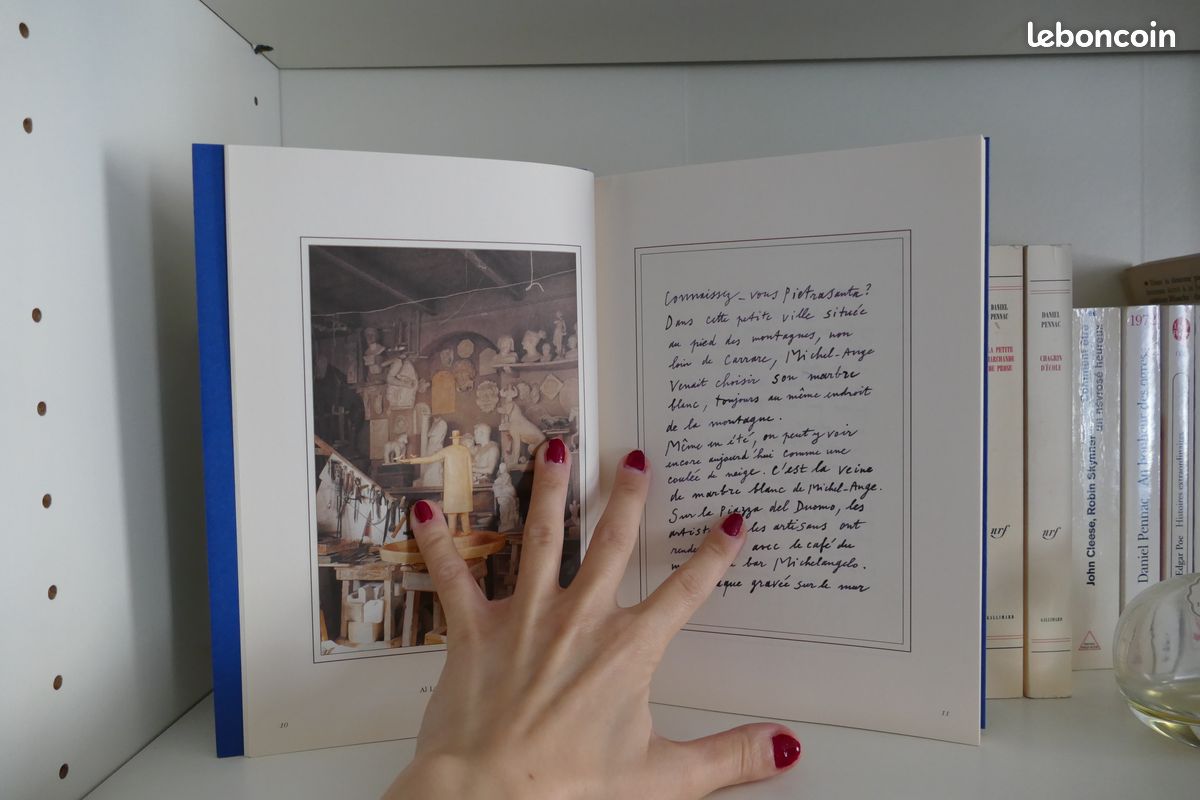 leboncoin
Connaissez-vous Pietrasanta?
Dans cette petite ville située
au pied des montagnes, non
loin de Carrare, Michel-Ange
venait choisir son marbre
blanc, toujours au même endroit
de la montagne.
Même en été, on peut y voir
encore aujourd'hui comme une
coulée de neige. C'est la veine
de marbre blanc de Michel-Ange.
Sur la Piazza del Duomo, les
artist les artisans ont
rende avec le café du
m bar Michelangelo.
aque gravée sur le mur
Al L
10
11
DANIEL
PENNAC
LA PETITE
MARCHANDE
DE PROSE
nrf
GALLIMARD
DANIEL
PENNAC
CHAGRIN
D'ÉCOLE
nrf
GALLIMARD
John Cleese, Robin Skynner
Comment être
un névrosé heureux
1972
Daniel Pennac Au bonheur des ogres
Edgar Poe Histoires extraordinaires